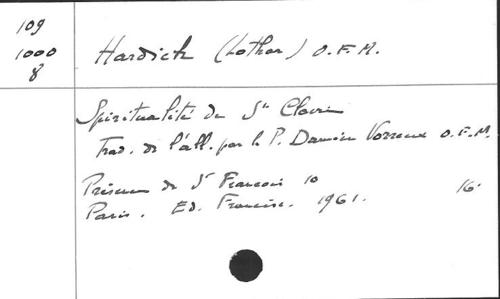 109
1000
8
Hardick (Lothar) O.F.M.
Spiritualité de Ste Claire
Trad. de l'all. par le P. Damien Vorreux O.F.M.
Présence de St François 10
Paris. Ed. Francisc. 1961. 16.